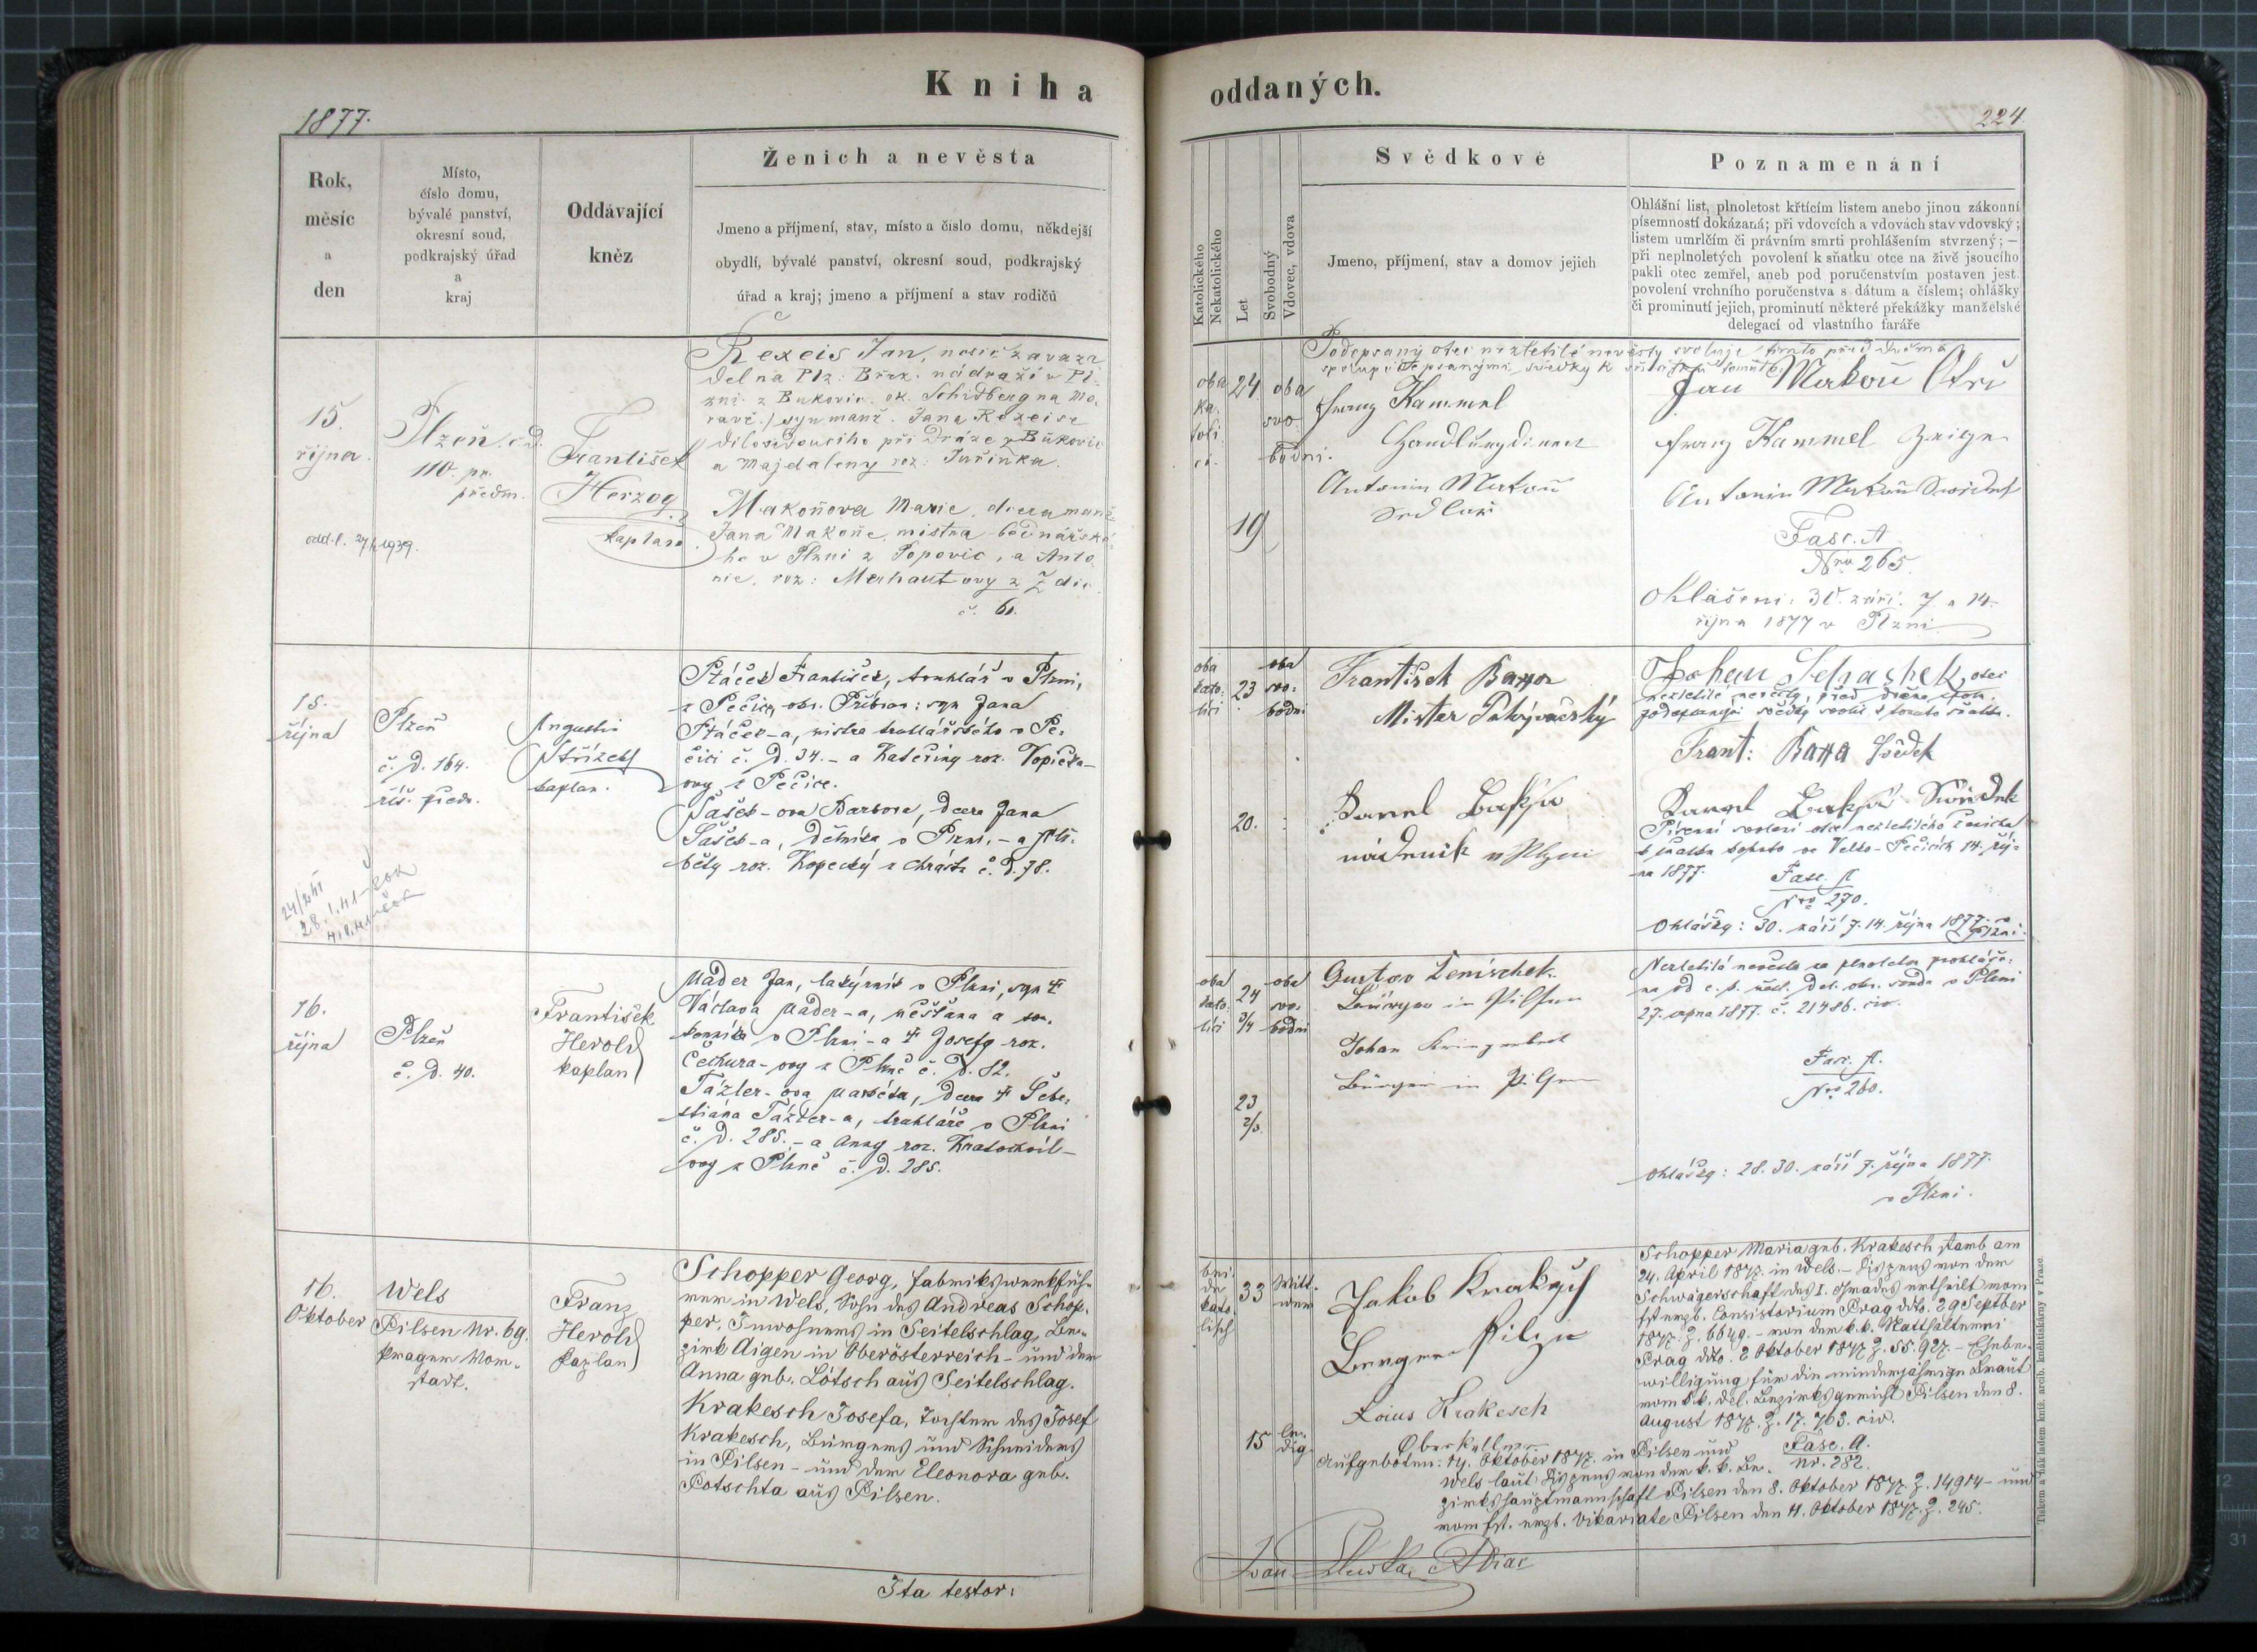 Kniha
oddaných.
1877.
224
Rok,
měsíc
a
den
Místo,
číslo domu,
bývalé panství,
okresní soud,
podkrajský úřad
a
kraj
Oddávající
kněz
Ženich a nevěsta
Jmeno a příjmení, stav, místo a číslo domu, někdejší
obydlí, bývalé panství, okresní soud, podkrajský
úřad a kraj; jmeno a příjmení a stav rodičů
Katolického
Nekatolického
Let
Svobodný
Vdovec, vdova
Svědkové
Jmeno, příjmení, stav a domov jejich
Poznamenání
Ohlášní list, plnoletost křtícím listem anebo jinou zákonní
písemností dokázaná; při vdovcích a vdovách stav vdovský;
listem umrlčím či právním smrti prohlášením stvrzený; —
při neplnoletých povolení k sňatku otce na živě jsoucího
pakli otec zemřel, aneb pod poručenstvím postaven jest
povolení vrchního poručenstva s dátum a číslem; ohlášky
či prominutí jejich, prominutí některé překážky manželské
delegací od vlastního faráře
15.
října
Plzeň č. d.
110. pr.
předm.
František
Herzog
kaplan
Řexeis Jan, nosič zavaza
del na Plz: Břez. nádraží v Pl-
zni z Bukovic. ok. Schidberg na Mo-
ravě.) syn manž. Jana Rexeisa
dílovedoucího při dráze z Bukovic
a Majdaleny roz: Juřinka.
Makoňova Marie, dcera manž.
Jana Makoňe, mistra bednářské-
ho v Plzni z Popovic, a Anto
nie, roz: Merhautovy z Zdic
č. 61.
oba
ka-
toli
ci.
24
19
oba
svo
bodni.
Podepsaný otec nezletilé nevěsty svoluje tímto před dvěma
Franz Kammel
Antonin Makoň
Sedlař
Jan Makoň Otec
Franz Kammel Zeuge
Antonin Makoň Swědek
Fasc. A
Nro 265.
Ohlášení: 30. září. 7 a 14.
října 1877 v Plzni
15.
října
Plzeň
č. D. 164.
říš. předm.
Augustin
Střízek
kaplan.
Ptáček František, truhlář v Plzni,
z Pečice, okr. Příbram: syn Jana
Ptáček-a, mistra truhlářského v Pe-
čici č. D. 34. - a Kateřiny roz. Vopička-
ovy z Pečice.
Šašek-ova Barbora, dcera Jana
Šašek-a, dělníka v Plzni, - a Alž-
běty roz. Kopecký z Chrásta č. D. 78.
oba
kato-
líci
23
20.
oba
svo-
bodni
František Barta
Mistar Pokrývačský
Karel
nádenik v Plzni
Johan Schaschek, otec
nezletilé nevěsty, před dvěma spolu-
podepsanými svědky svolil k tomuto sňatku.
Frant: Barta Svědek
Karel Swědek
Písemní svolení otce nezletilého ženicha
k sňatku tohoto ve Velko-Pečicích 14. říj-
na 1877.
Fasc. A
Nro 270.
Ohlášky: 30. září 7. 14. října 1877. v
Plzni.
16.
října
Plzeň
č. D. 40.
František
Herold
kaplan
Mader Jan, lakýrník v Plzni, syn †
Václava Mader-a, měšťana a sou-
kenníka v Plzni - a † Josefy roz.
Čechura-ovy z Plzně č. D. 82.
Tázler-ova Markéta, dcera † Šebe-
stiána Tázler-a, truhláře v Plzni
č. D. 285. - a Anny roz. Kratochvíl-
ovy z Plzně č. D. 285.
oba
kato-
líci
24
3/4
23
2/3.
oba
svo-
bodni
Gustav Lenischek
Bürger in Pilsen
Johan
Bürger in Pilsen
Nezletilá nevěsta za plnoletou prohláše-
na od c. k. měst. del. okr. soudu v Plzni
27. srpna 1877. č. 21486. civ.
Fasc. A.
Nro 260.
Ohlášky: 28. 30. září 7. října 1877.
v Plzni.
16.
Oktober
Wels
Pilsen Nr. 69.
Prager Vor-
stadt.
Franz
Herold
Kaplan
Schopper Georg, Fabrikswerkfüh-
rer in Wels, Sohn des Andreas Schop-
per, Inwohners in Seitelschlag, Be-
zirk Aigen in Oberösterreich - und der
Anna geb. Lötsch aus Seitelschlag.
Krakesch Josefa, Tochter des Josef
Krakesch, Bürgers und Schneiders
in Pilsen - und der Eleonora geb.
Potschta aus Pilsen.
bei
de
kato
lisch
33
15
Witt-
wer
le-
dig
Jakob Krakesch
Bürger Pilsen
Loius Krakesch
Oberkellner
Schopper Maria geb. Krakesch starb am
24. April 1877. in Wels. - Dispens von der
Schwägerschaft des I. Grades ertheilt vom
fst. erzb. Consistorium Prag ddto. 29 Septber
1877. Z. 6649. - von der k. k. Statthalterei
Prag ddto. 2 Oktober 1877 Z. 55.927. - Ehebe-
willigung für die minderjährige Braut
vom k. k. del. Bezirksgericht Pilsen den 8.
August 1877. Z. 17.763. civ.
Fasc. A.
Nr. 282.
Aufgeboten: 14. Oktober 1877. in Pilsen und
Wels laut Dispens von der k. k. Be-
zirkshauptmannschaft Pilsen den 8. Oktober 1877. Z. 14914 - und
vom fst. erzb. Vikariate Pilsen den 11. Oktober 1877. Z. 245.
Ita testor:
Tiskem a nákladem kníž. arcib. knihtiskárny v Praze.